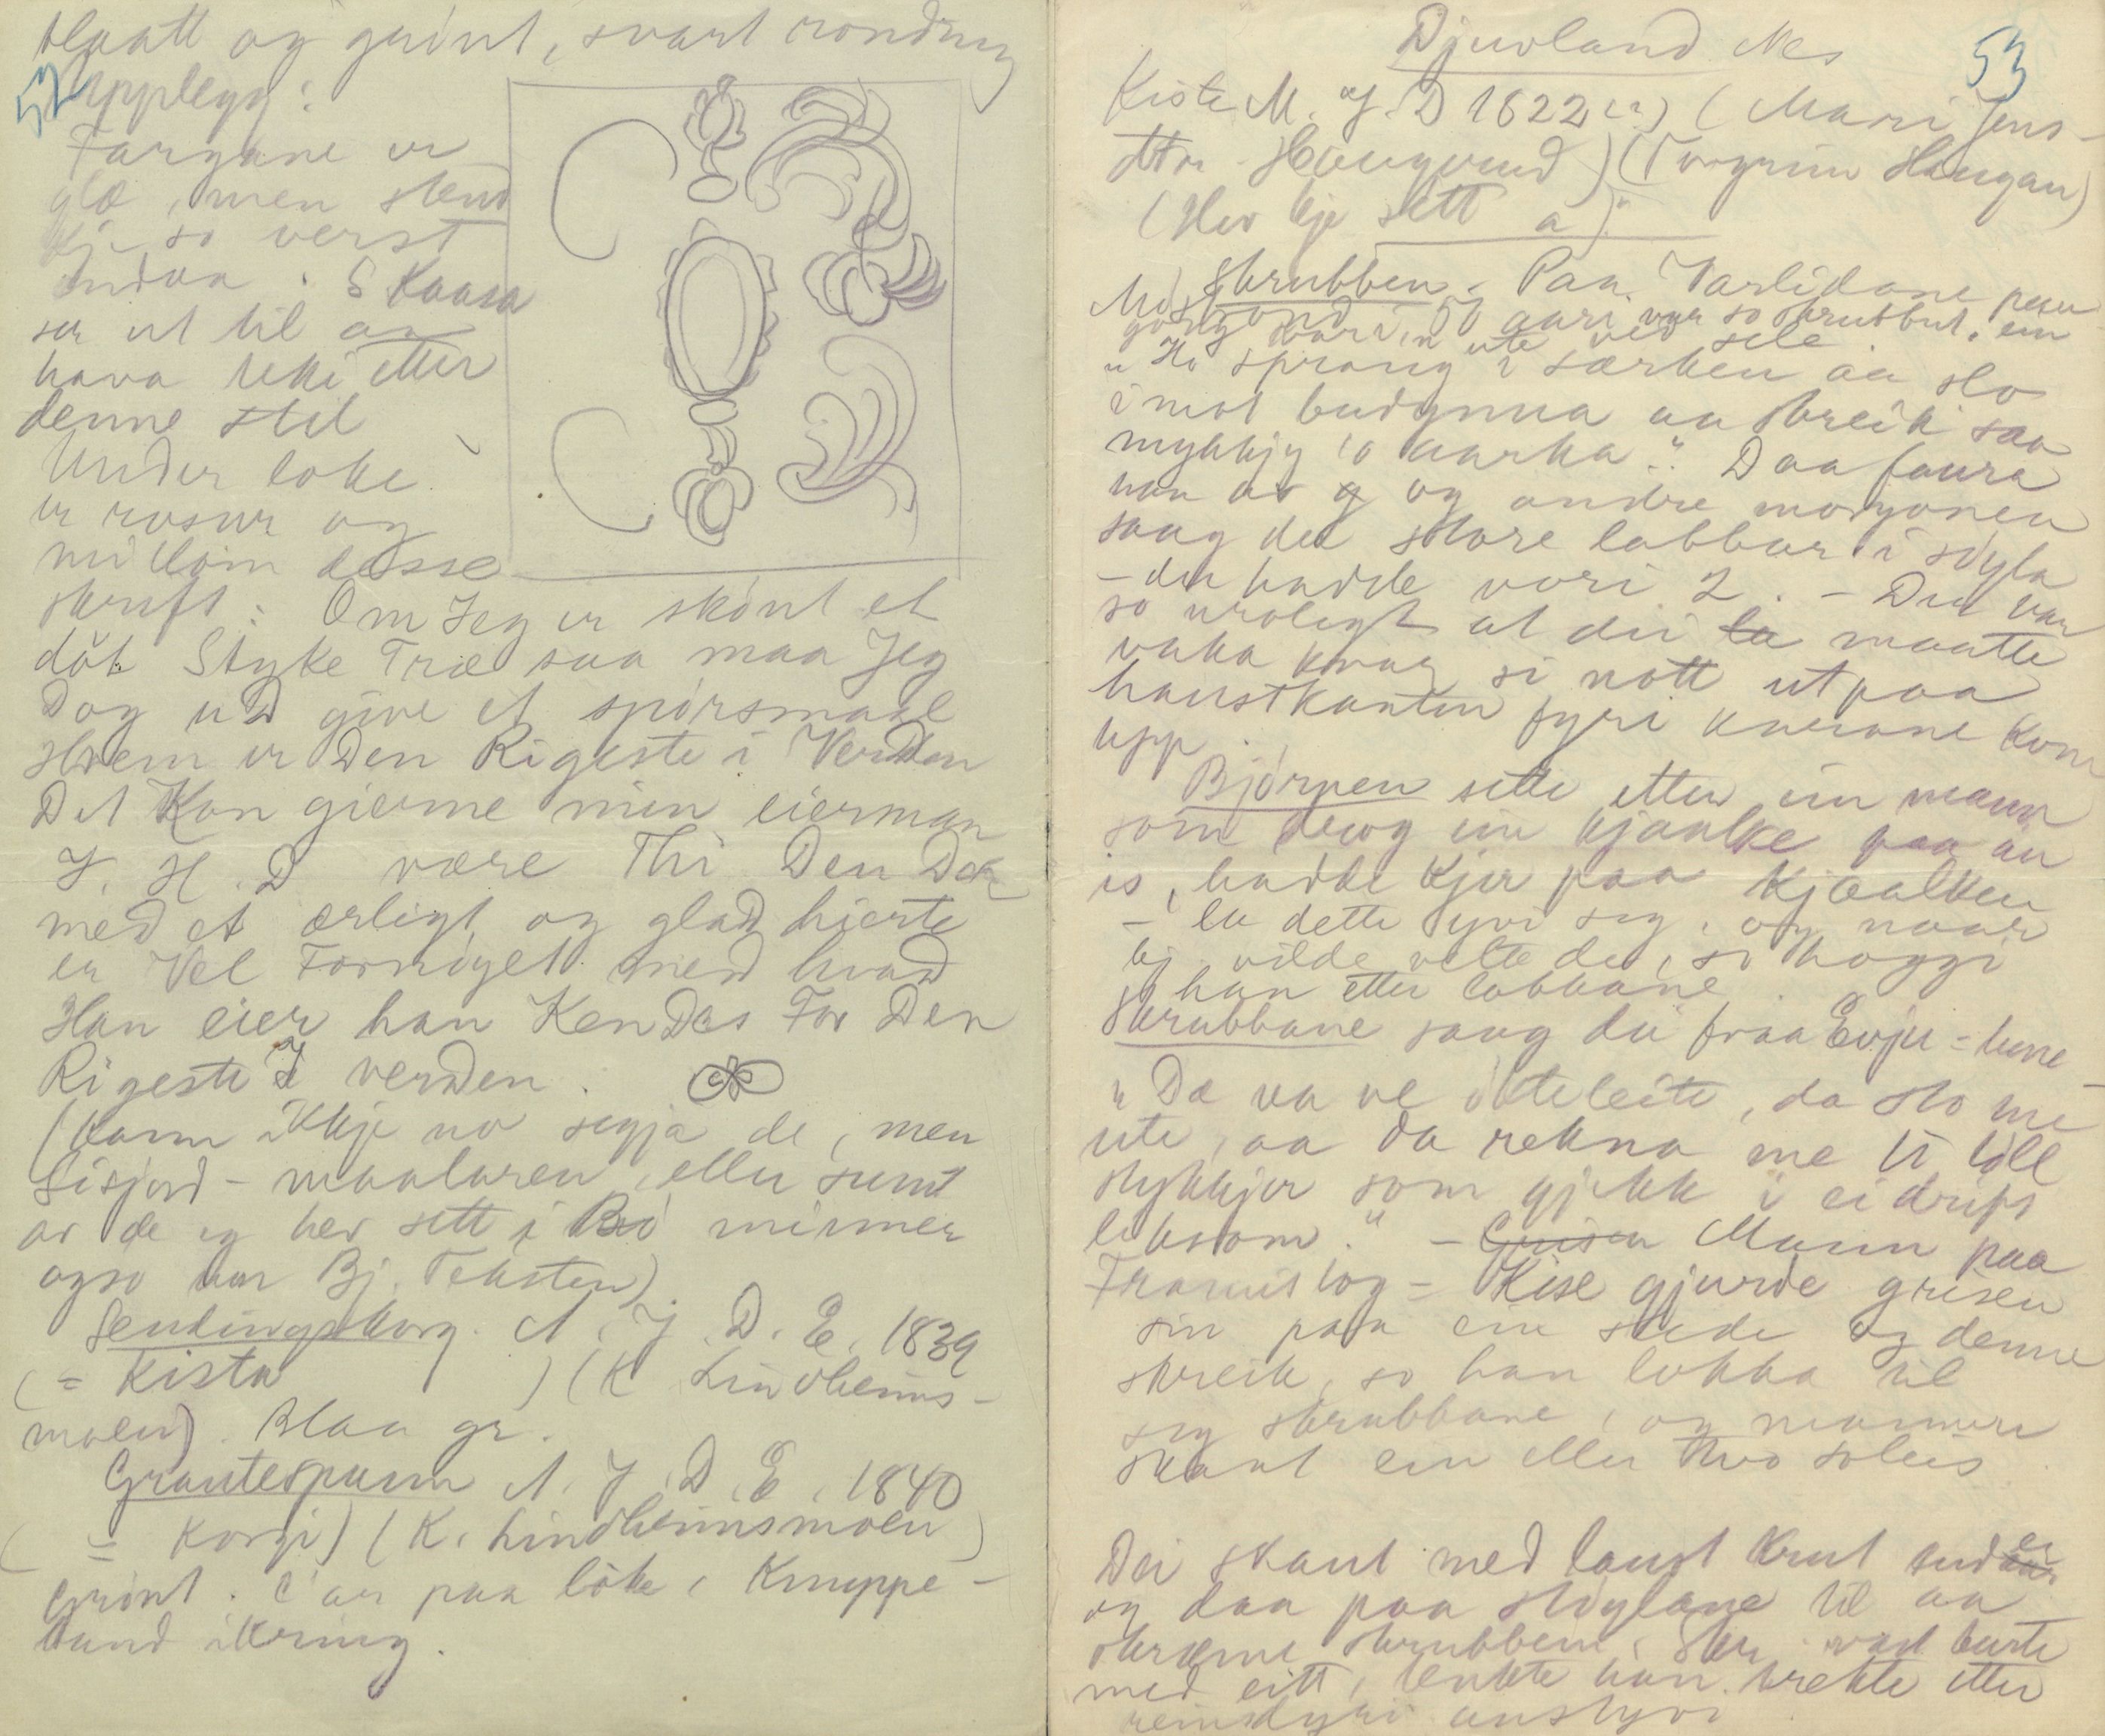 blaatt og grönt, svart rondning
52
Upplegg:
Fargane er
glæ, men stend
so verst
endaa. S Kaasa
ser ut til aa
hava teki etter
denne stil
Under loke
er rosur og
millom desse
skrift: Om Jeg er skönt et
döt Styke Træ saa maa Jeg
Dog uD give et spörsmaal
Hvem er Den Rigeste i VerDen
Det Kan gierne min eierman
J. H. D være Thi Den Der
med et ærligt og glaD hierte
er Vel Fornöyet med hvaD
Han eier han KenDes For Den
Rigeste I verDen.
(Kann ikkje no segja de, men
Lisjord-maalaren, eller sumt
av de eg hev sett i Bö minner
ogso um Bj. Teksten).
Sendingskorg. A. J. D. E. 1839
(= Kista ) (K Lindheims-
moen). Blaa gr.
Grautespann A. J. D. E. 1840
( = Korgi) (K. Lindheimsmoen)
Grönt. C'ar paa löke, Knuppe-
band ikring.
Djuvland Nes
53
Kiste M. J. D 1822 (?) (Mari Jens-
dtr Haugerud) (Torgrim Haugan)
(Hev kje sett a).
Skrubben. Paa Varlidane
50 aari var so skrubbut. ein
gong vari n ute ved sele
"Ho sprang i særken aa slo
imot budynna aa skreik saa
mykkjy o aarka". Daa faura
han av og andre morgonen
saag dei store labbar i söyla
- dei hadde vori 2. - Dei var
so uroligt at dei maatte
vaka kvar si nott utpaa
haustkanten fyri kverane kom
upp.
Björnen sette etter ein mann
som drog ein kjaalke paa ein
is, hadde kjer paa kjaalken
- la dette yvi seg, og naar
bj. vilde velte de, so hoggi
han etter labbane.
Skrubbane saag dei fraa Evju-tune
"Dæ va ve öteleite, da sto me
ute, aa da rekna me ti toll
stykkjer som gjekk i ei drift
liksom." - Mann paa
Framistog-Kise gjurde grisen
sin paa ein slede og denne
skreik, so han lokka til
seg skrubbane, og mannen
skaut ein eller two soleis.
Dei skaut med laust krut
og daa paa stöylane til aa
skræme skrubben. Skr. vart burte
med eitt, tenkte han trekte etter
reinsdyri austyvi